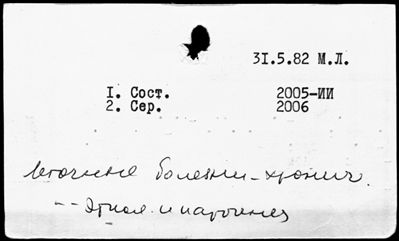 31.5.82 М.Л.
1. Сост. 2005-ИИ
2. Сер. 2006
Легочные болезни-хронич.
-- Этиол. и патогенез